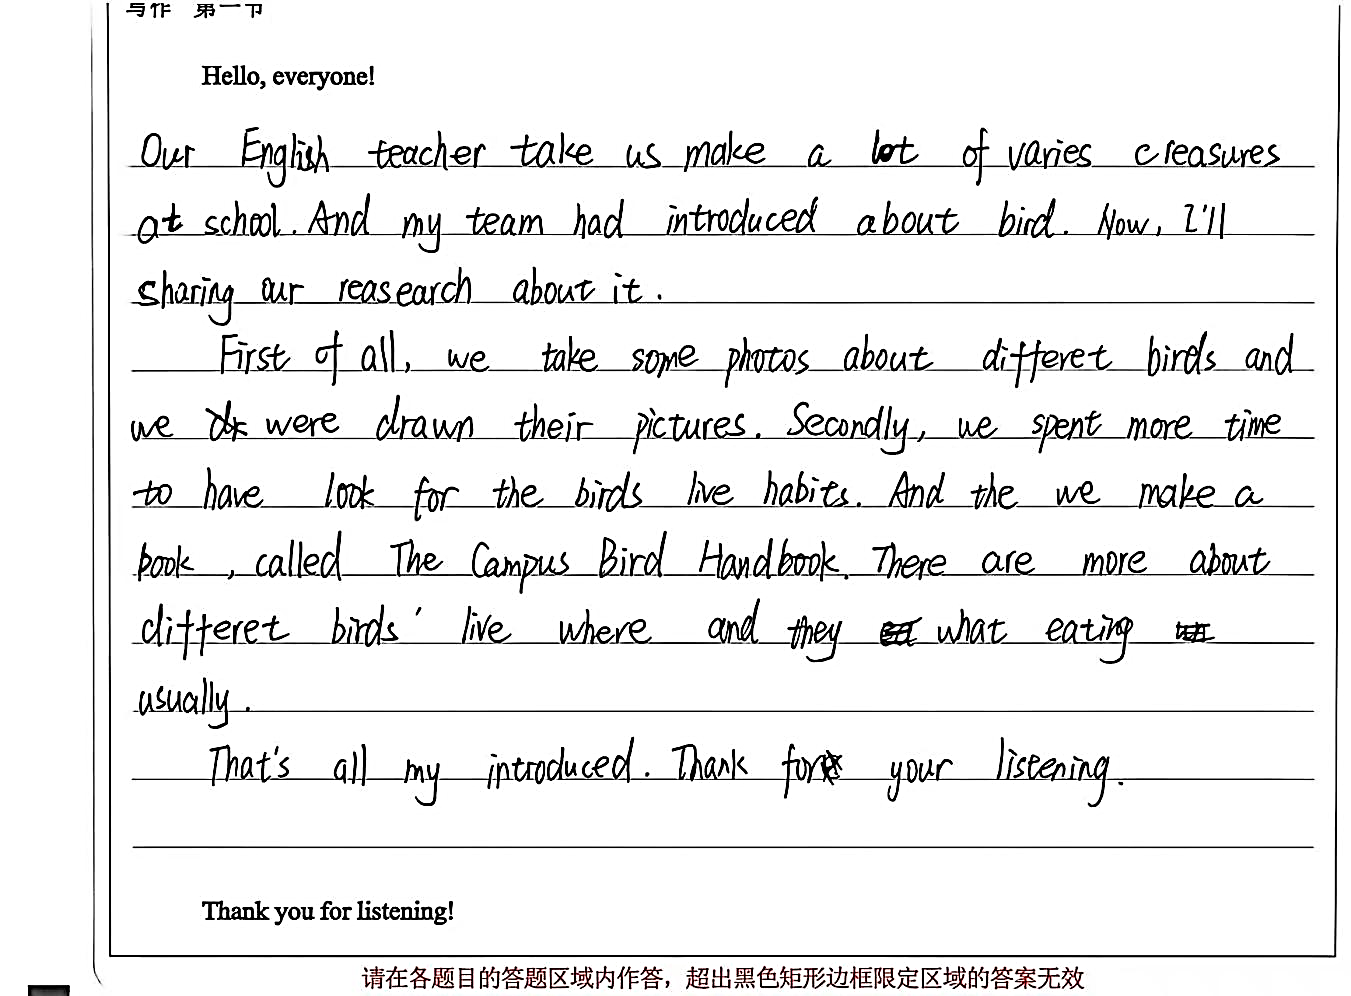 写作 第一节
Hello, everyone!
Our English teacher take us make a lot of varies creasures
at school. And my team had introduced about bird. Now, I'll
sharing our reasearch about it.
First of all, we take some photos about differet birds and
we were drawn their pictures. Secondly, we spent more time
to have look for the birds live habits. And the we make a
book, called The Campus Bird Handbook. There are more about
differet birds' live where and they what eating
usually.
That's all my introduced. Thank for your listening.
Thank you for listening!
请在各题目的答题区域内作答，超出黑色矩形边框限定区域的答案无效